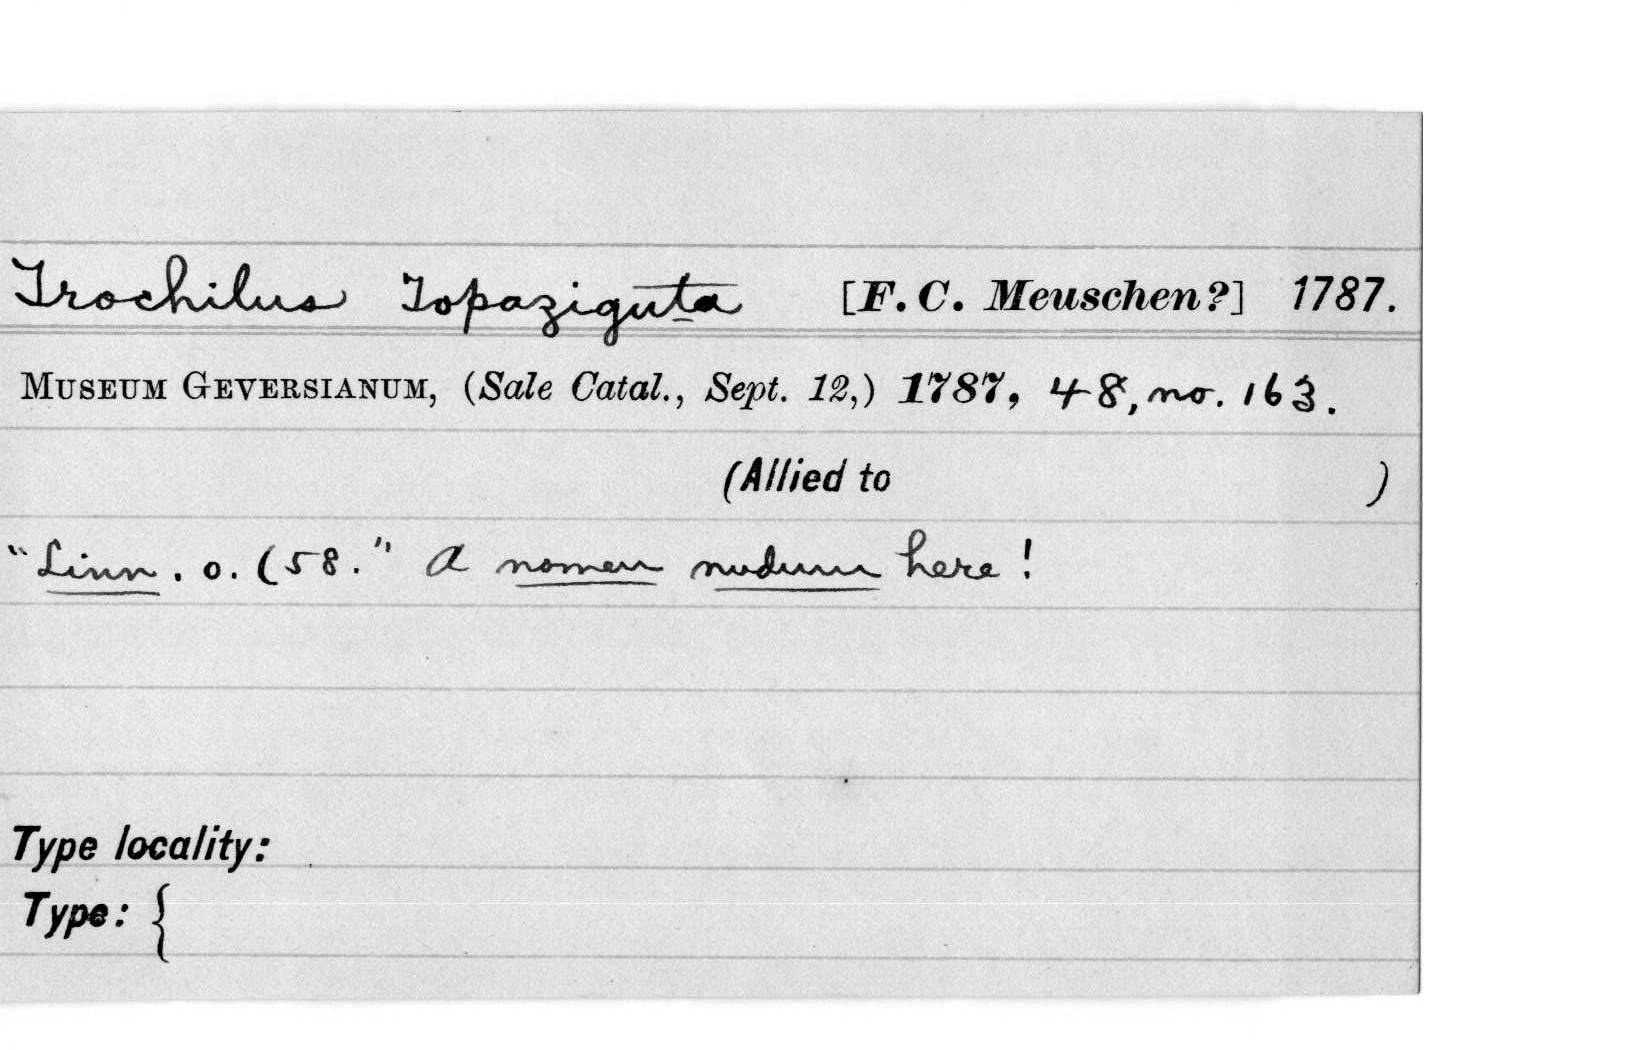 Trochilus Topaziguta [F. C. Meuschen?] 1787.
MUSEUM GEVERSIANUM, (Sale Catal., Sept. 12,) 1787, 48, no. 163.
(Allied to )
"Linn. o. (58." A nomen nudum here!
Type locality:
Type: {